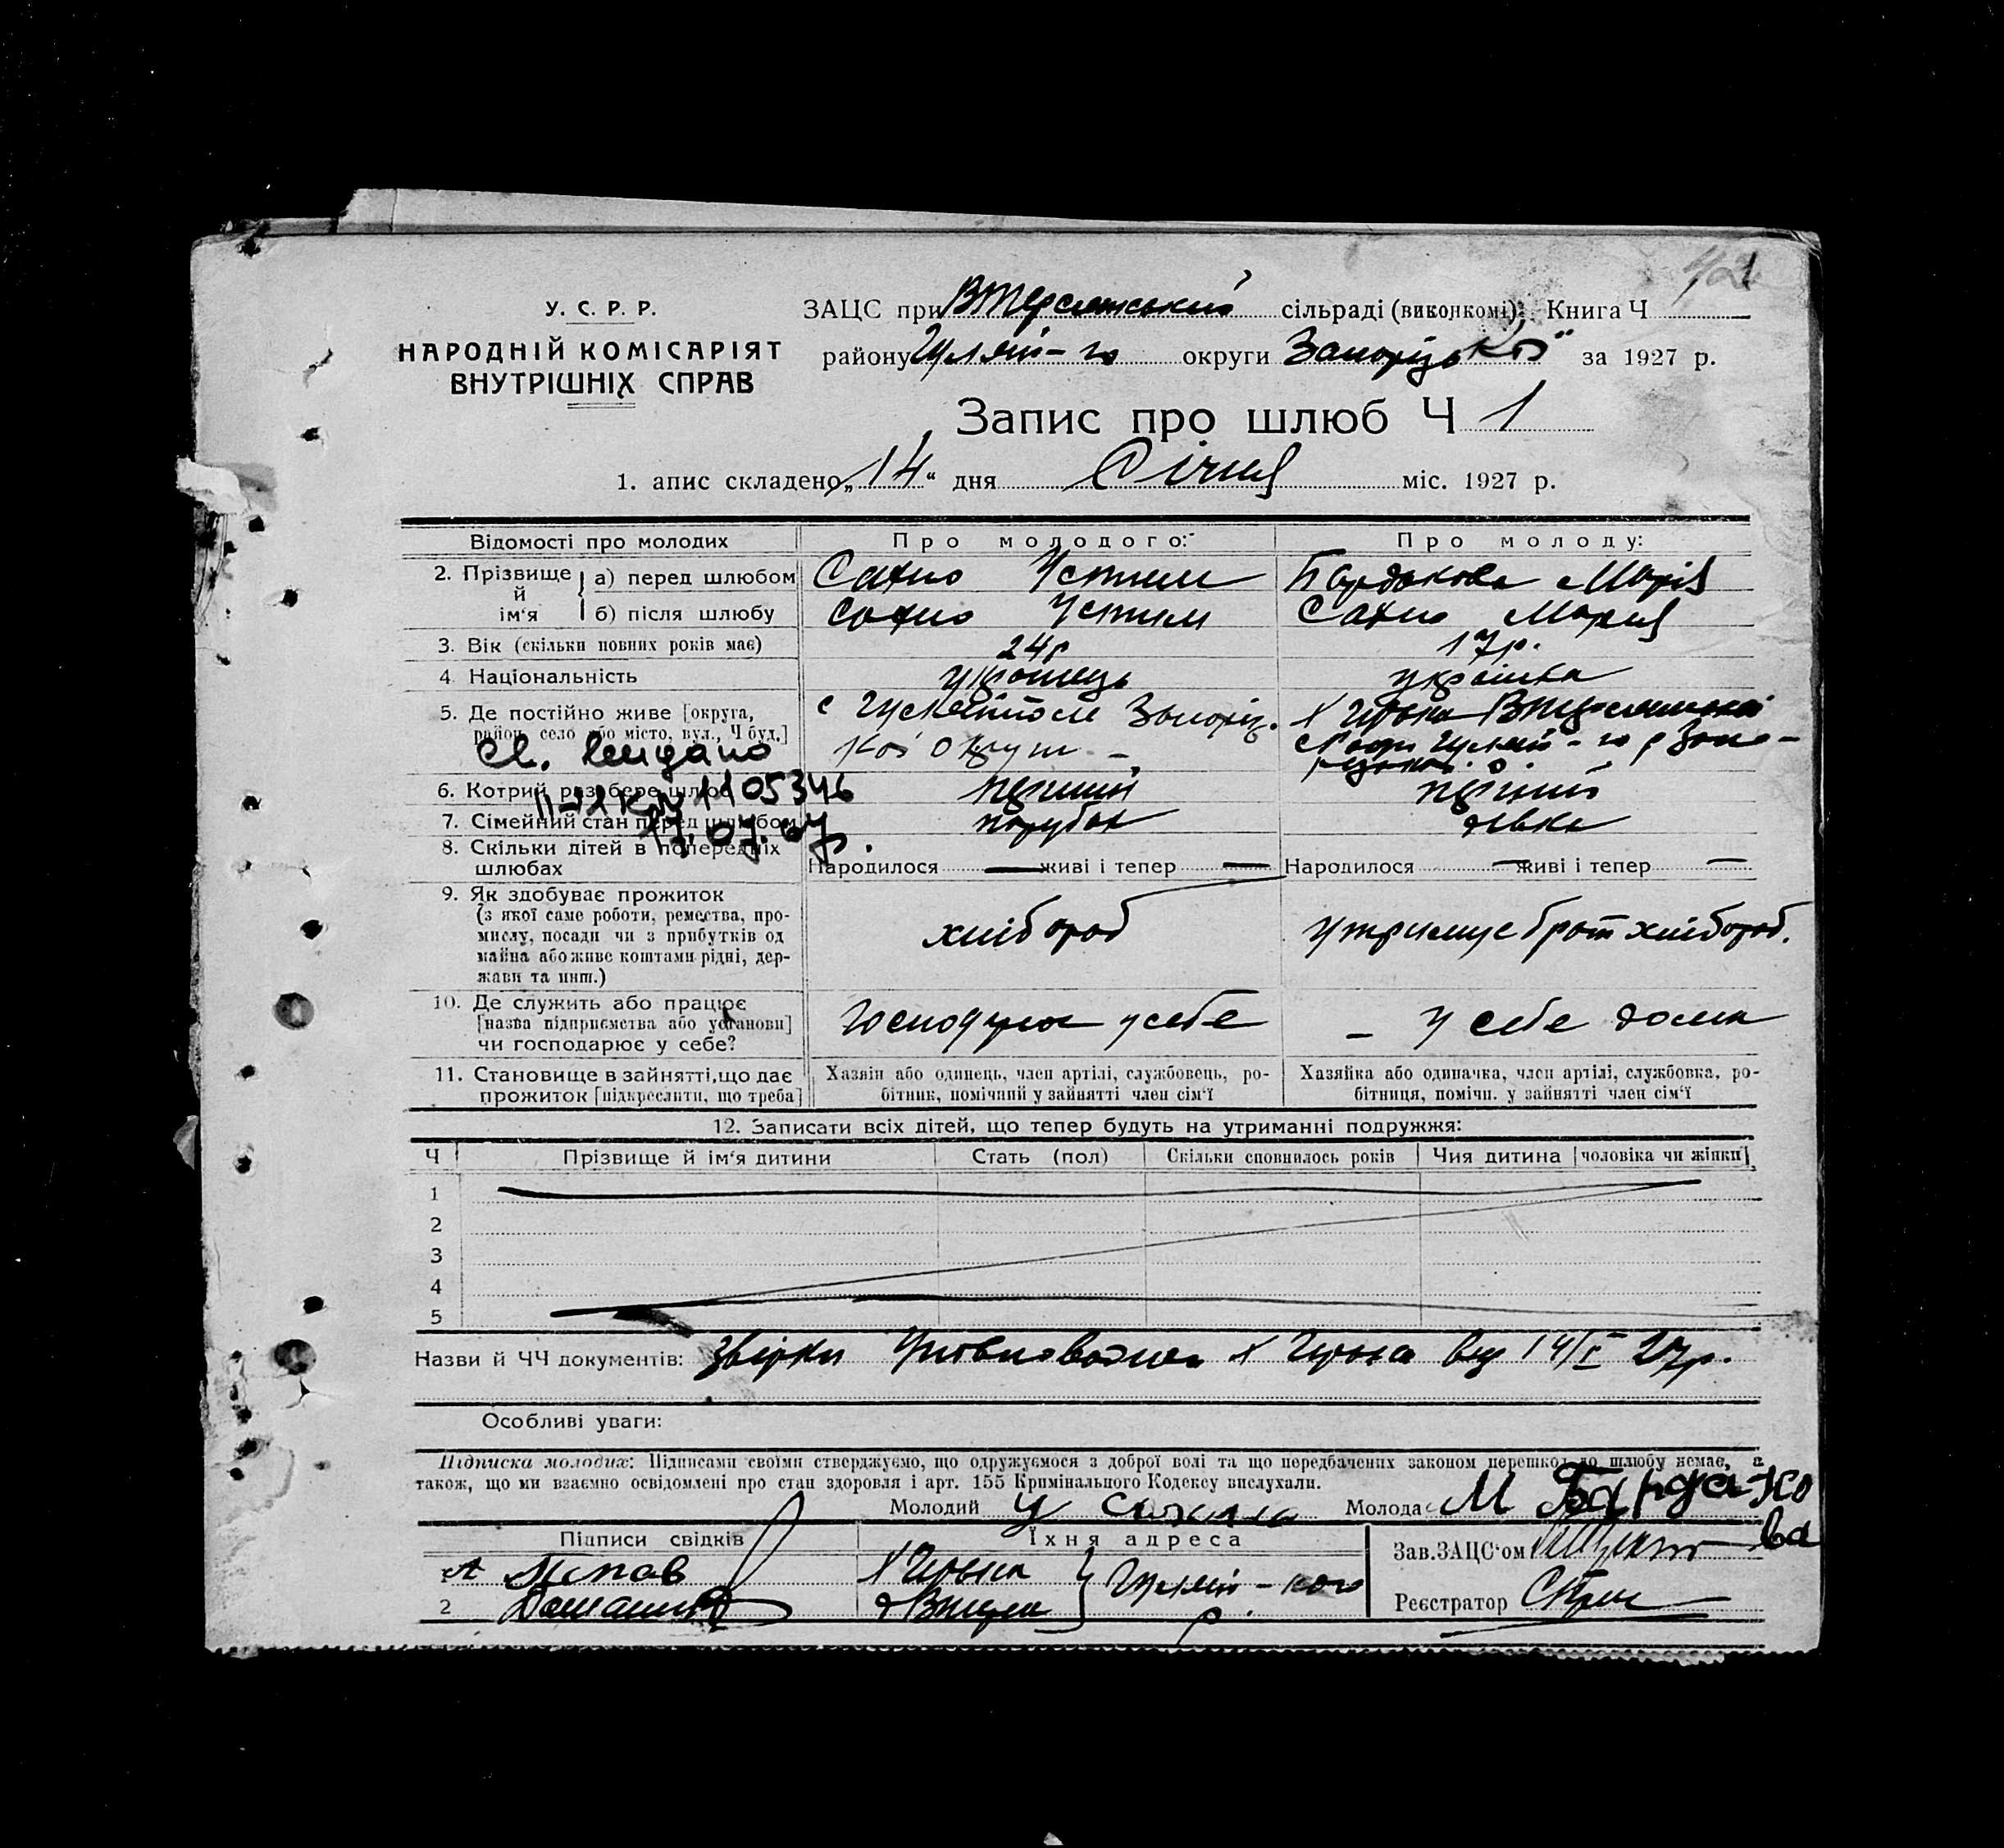 У. С. Р. Р.
НАРОДНІЙ КОМІСАРІЯТ
ВНУТРІШНІХ СПРАВ
ЗАЦС при сільраді (виконкомі); Книга Ч
району Гуляй-го округи Запорізької за 1927 р.
Запис про шлюб Ч 1
1. апис складено „14“ дня Січня міс. 1927 р.
Відомості про молодих Про молодого: Про молоду:
2. Прізвище й ім‘я а) перед шлюбом Сахно Устим Бардакова Марія
б) після шлюбу Сахно Устим Сахно Мария
3. Вік (скільки повних років має) 24р 17р.
4. Національність українець українка
5. Де постійно живе [округа, район, село або місто, вул., Ч буд.] с Гуляйполе Запоріз.
кої округи
Св. видано
1105346
17.07.67р.
6. Котрий раз бере шлюб перший перший
7. Сімейний стан перед шлюбом парубок дівка
8. Скільки дітей в попередніх
шлюбах Народилося — живі і тепер — Народилося — живі і тепер —
9. Як здобуває прожиток
(з якої саме роботи, ремества, про-
мислу, посади чи з прибутків од
майна або живе коштами рідні, дер-
жави та инш.)
хлібороб утримує брат хлібороб.
10. Де служить або працює
[назва підприємства або установи]
чи господарює у себе?
господарює у себе – у себе дома
11. Становище в зайнятті, що дає
прожиток [підкреслити, що треба]
Хазяін або одинець, член артілі, службовець, ро-
бітник, помічний у зайнятті член сім‘ї
Хазяйка або одиначка, член артілі, службовка, ро-
бітниця, помічн. у зайнятті член сім‘ї
12. Записати всіх дітей, що тепер будуть на утриманні подружжя:
Ч Прізвище й ім‘я дитини Стать (пол) Скільки сповнилось років Чия дитина [чоловіка чи жінки]
1
2
3
4
5
Назви й ЧЧ документів: Уповноважен х 14/I 27р.
Особливі уваги:
Підписка молодих: Підписами своїми стверджуємо, що одружуємося з доброї волі та що передбачених законом перешкод до шлюбу немає, а
також, що ми взаємно освідомлені про стан здоровля і арт. 155 Кримінального Кодексу вислухали.
Молодий У Сахно Молода М Бардакова
Підписи свідків Їхня адреса Зав.ЗАЦС‘ом
1 Гуляй-кого
2 р.
Реєстратор